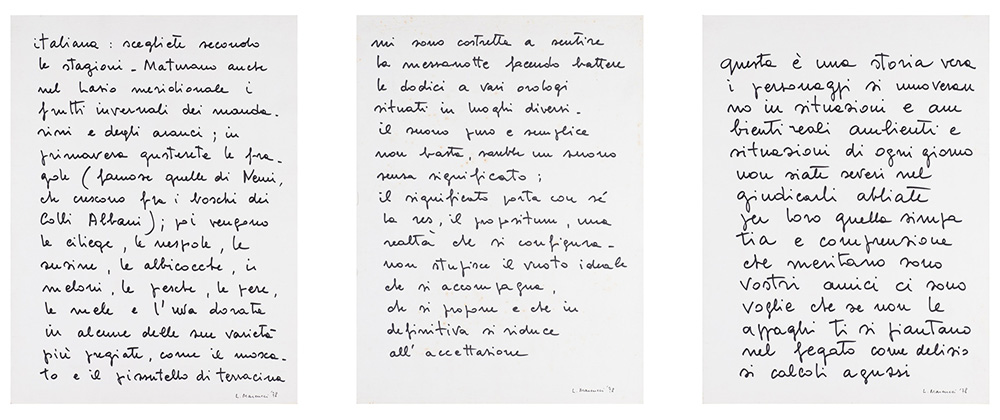 italiana : scegliete secondo
le stagioni - Maturano anche
nel Lazio meridionale i
frutti invernali dei manda-
rini e degli aranci ; in
primavera gusterete le fra-
gole ( famose quelle di Nemi,
che crescono fra i boschi dei
Colli Albani ) ; poi vengono
le ciliege , le nespole , le
susine , le albicocche , i
meloni , le pesche , le pere ,
le mele e l'uva dorata
in alcune delle sue varietà
più pregiate , come il mosca-
to e il pizzutello di terracina
L. Marcucci '78
mi sono costretta a sentire
la mezzanotte facendo battere
le dodici a vari orologi
situati in luoghi diversi -
il suono puro e semplice
non basta , sarebbe un suono
senza significato ;
il significato porta con sé
la res , il propositum , una
realtà che si configura -
non stupisce il vuoto ideale
che si accompagna ,
che si propone e che in
definitiva si riduce
all' accettazione
L. Marcucci '78
questa è una storia vera
i personaggi si muoveran
no in situazioni e am
bienti reali ambienti e
situazioni di ogni giorno
non siate severi nel
giudicarli abbiate
per loro quella simpa
tia e comprensione
che meritano sono
vostri amici ci sono
voglie che se non le
appaghi ti si piantano
nel fegato come deliziosi
si calcoli aguzzi
L. Marcucci '78